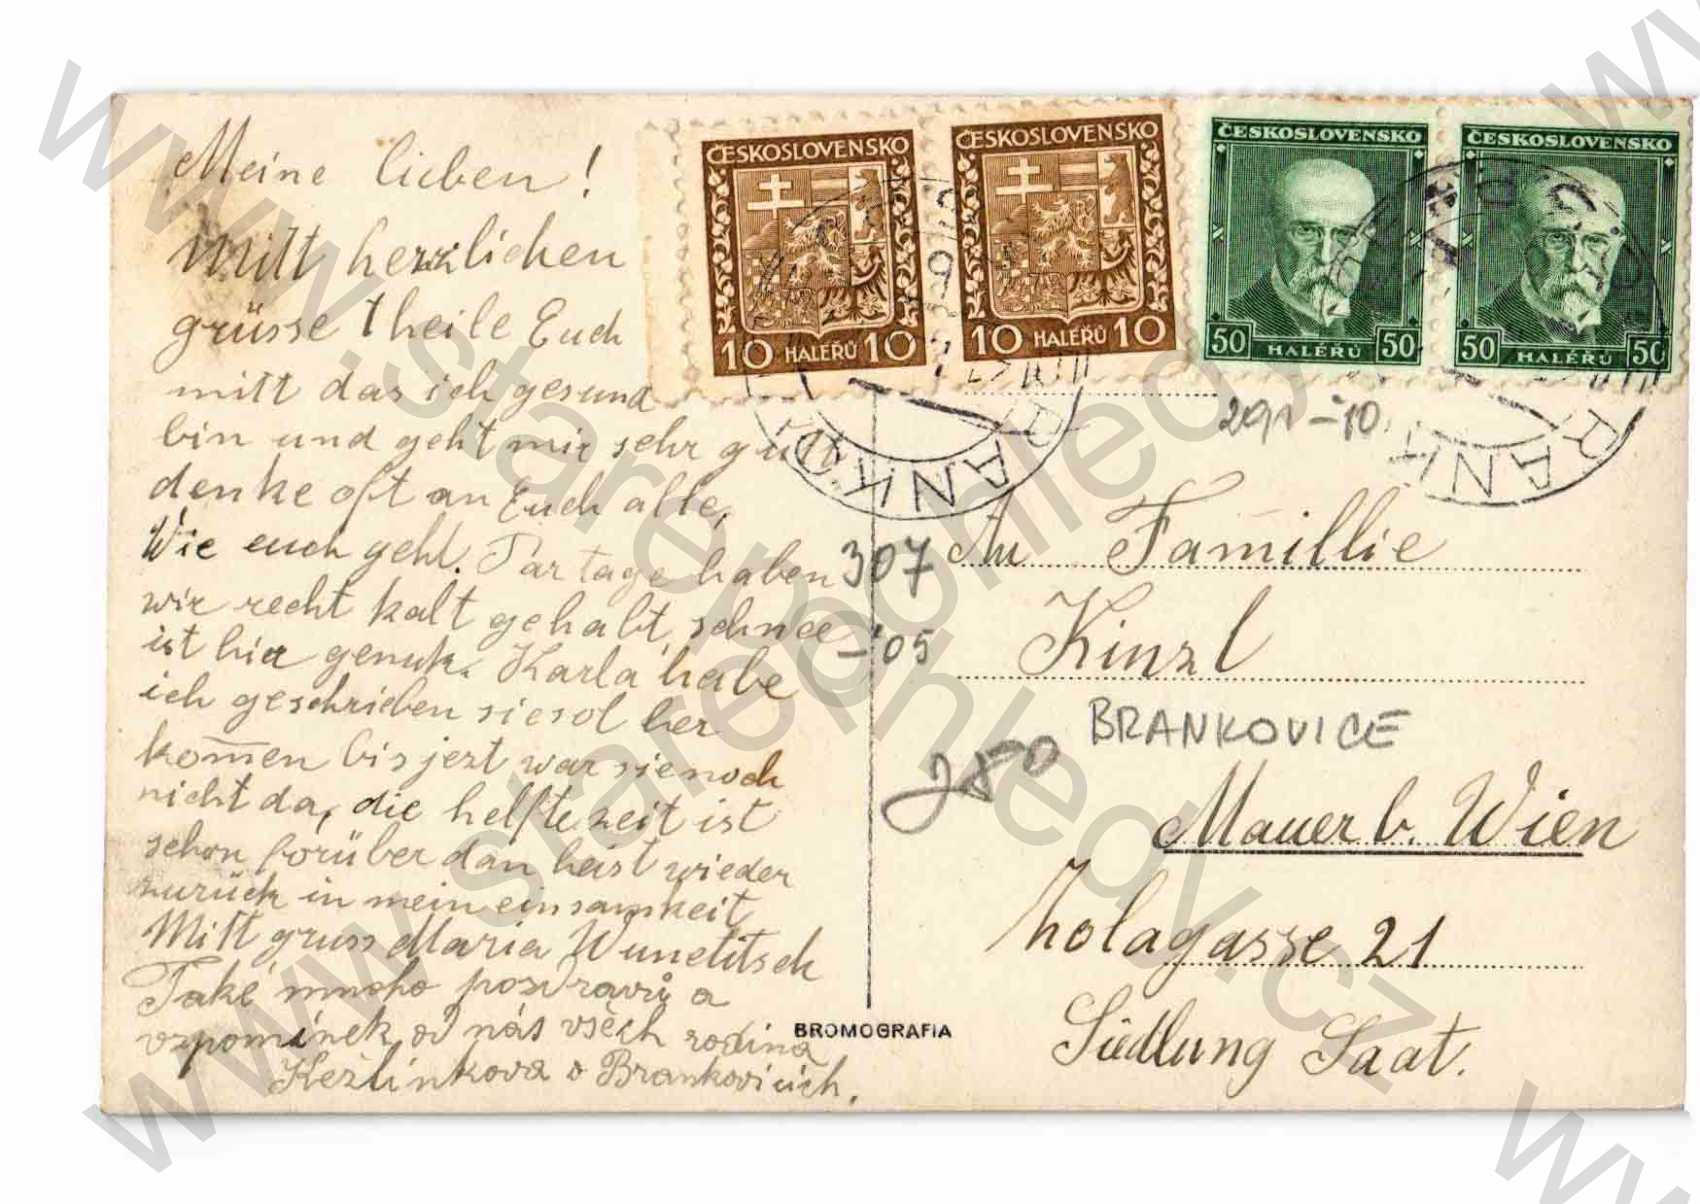 Meine lieben!
Mitt herzlichen
grüsse theile Euch
mitt das ich gesund
bin und geht mir sehr gutt
denke oft an Euch alle,
Wie euch geht. Par tage haben
wir recht kalt gehabt, schnee
ist hier genuk. Karla habe
ich geschrieben sie sol her
kom̄en bis jezt war sie noch
nicht da, die helfte zeit ist
schon forüber dan heist wieder
zurück in mein einsamkeit
Mitt gruss Maria Wunetitsch
Také mnoho pozdravů a
vzpomínek od nás všech rodina
Kežlínkova v Brankovicích.
ČESKOSLOVENSKO
10 HALÉŘŮ 10
ČESKOSLOVENSKO
10 HALÉŘŮ 10
ČESKOSLOVENSKO
50 HALÉŘŮ 50
ČESKOSLOVENSKO
50 HALÉŘŮ 50
BRANKO
RANK
291-10
307
-05
An Famillie
Kinzl
BRANKOVICE
280
Mauer b. Wien
Zolagasse 21
Siedlung Saat.
BROMOGRAFIA
www.starepohledy.cz
www.starepohledy.cz